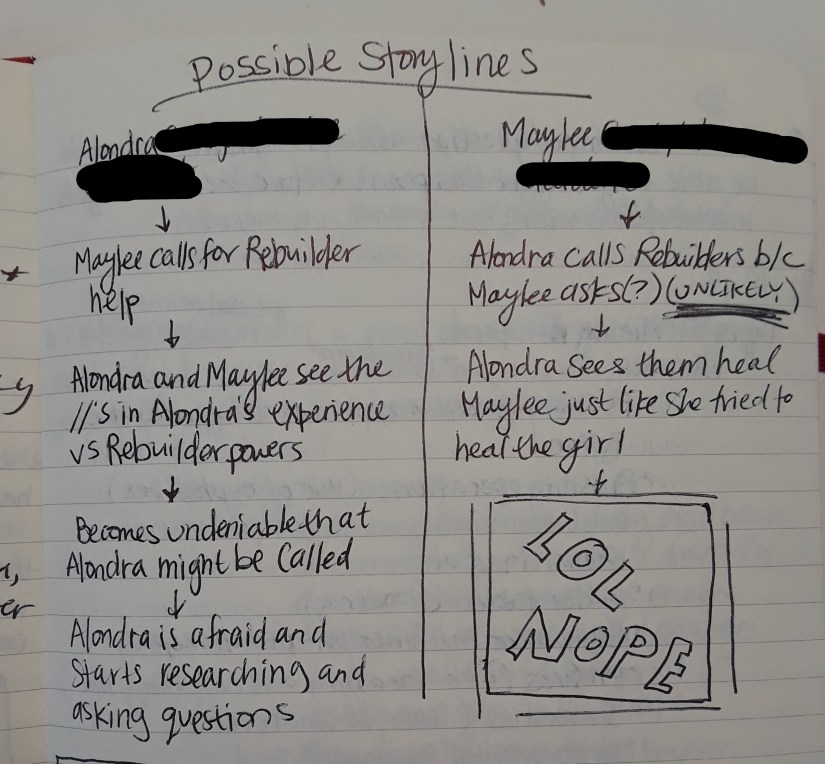 Possible Storylines
Alondra
↓
Maylee calls for Rebuilder
help
↓
Alondra and Maylee see the
//'s in Alondra's experience
vs Rebuilder powers
↓
Becomes undeniable that
Alondra might be Called
↓
Alondra is afraid and
Starts researching and
asking questions
Maylee
↓
Alondra calls Rebuilders b/c
Maylee asks(?) (UNLIKELY)
↓
Alondra sees them heal
Maylee just like she tried to
heal the girl
↓
LOL
NOPE
y
er